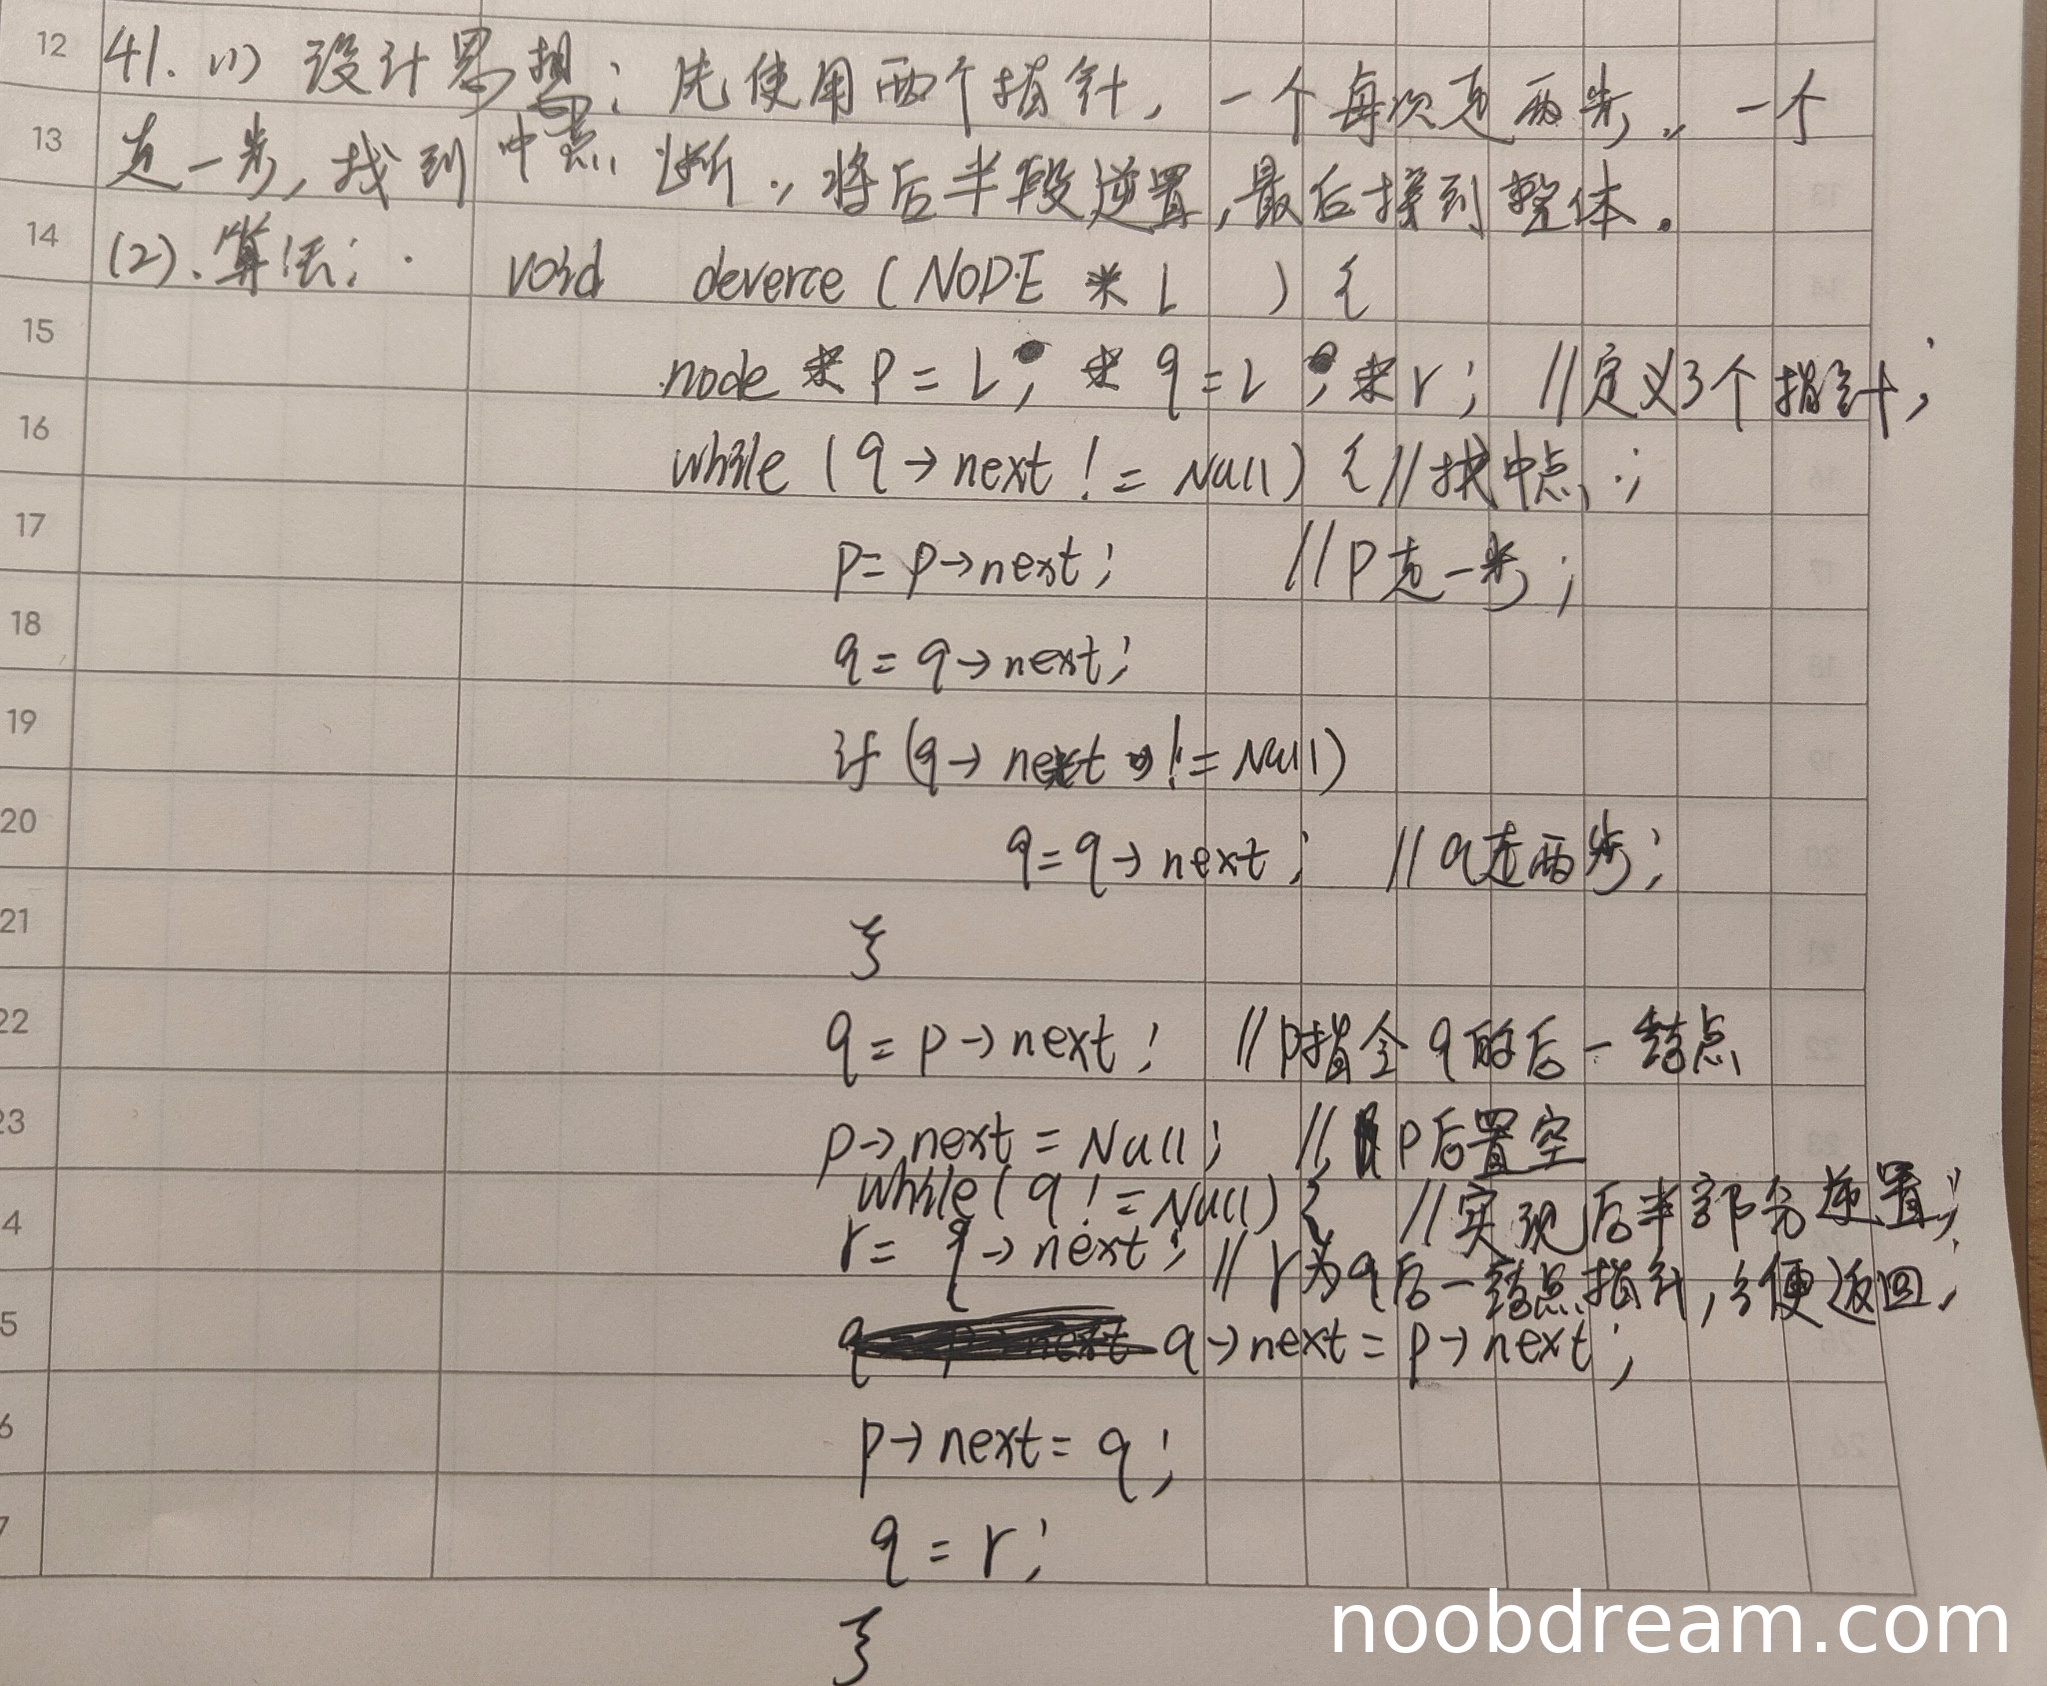 12 41. (1) 设计思想：先使用两个指针，一个每次走两步，一个
13 走一步，找到中点断，将后半段逆置，最后接到整体。
14 (2). 算法： void deverce (NODE * L ) {
15 node * p = L, * q = L, * r; //定义3个指针;
16 while (q→next != Null) { //找中点;
17 p = p→next; //p走一步;
18 q = q→next;
19 if (q→next != Null)
20 q = q→next; //q走两步;
21 }
22 q = p→next; //p指令q的后一结点
23 p→next = Null; //p后置空
while (q != Null) { //实现后半部分逆置;
4 r = q→next; //r为q后一结点指针,方便返回,
5 q→next = p→next;
6 p→next = q;
7 q = r;
}
noobdream.com